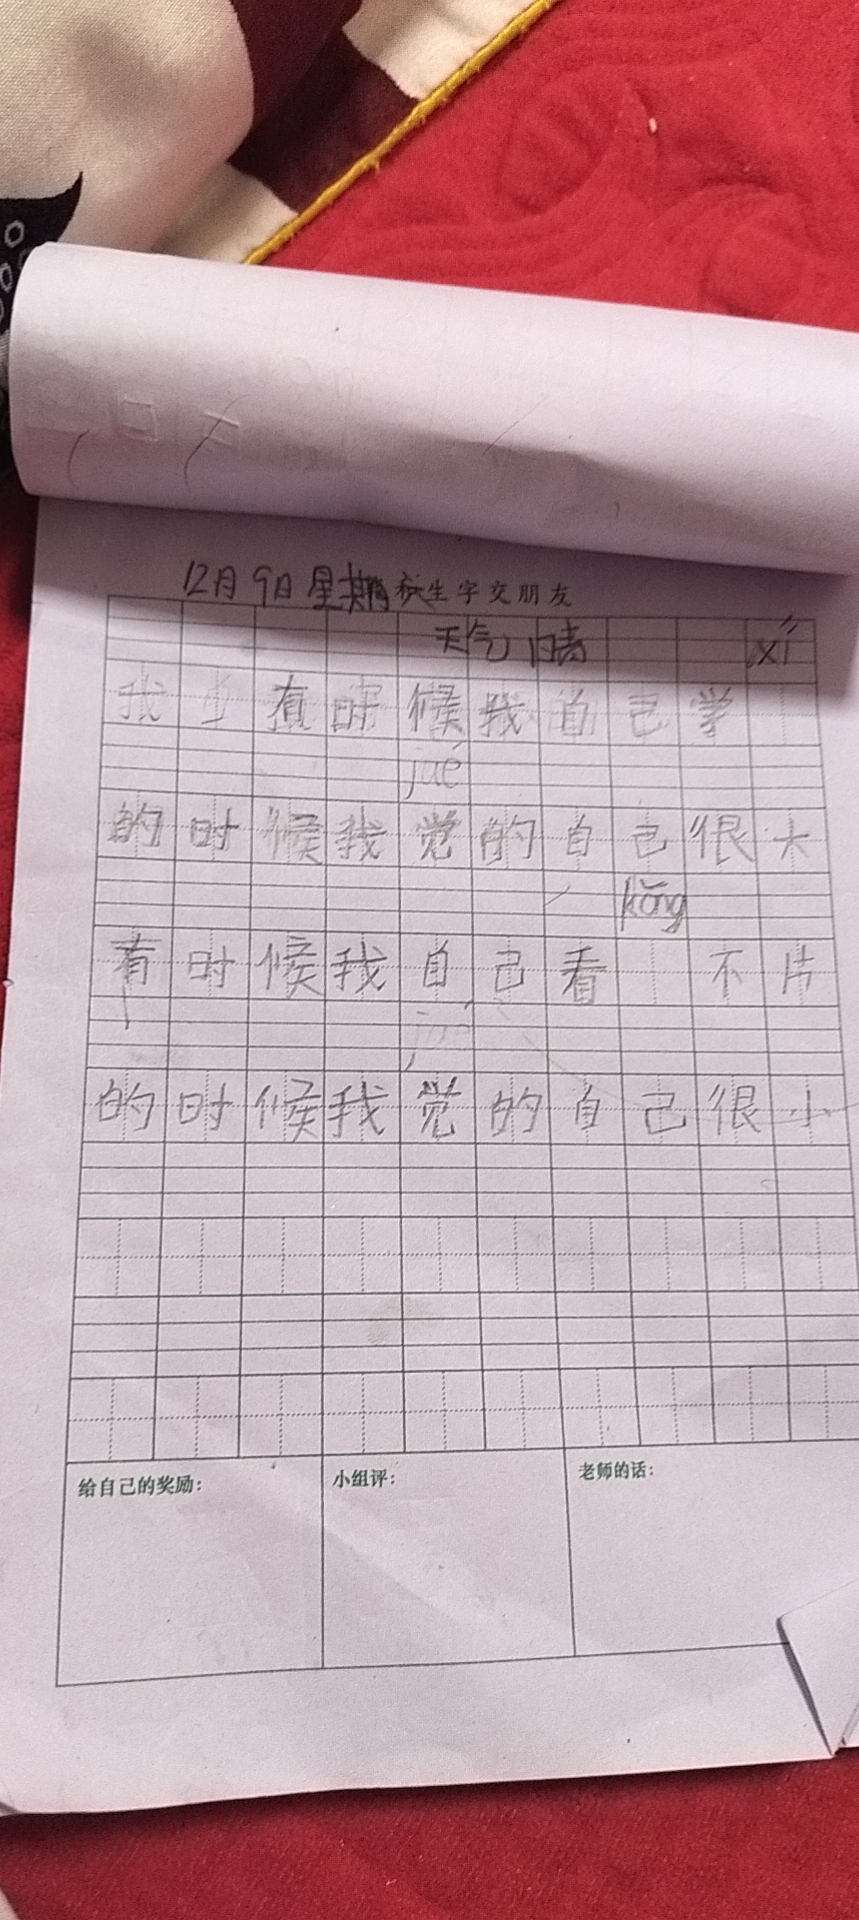 12月9日 星期 生字交朋友
天气 晴 xí
我 有时候我自己学
jué
的时候我觉的自己很大
kǒng
有时候我自己看 不片
jué
的时候我觉的自己很小
给自己的奖励: 小组评: 老师的话: